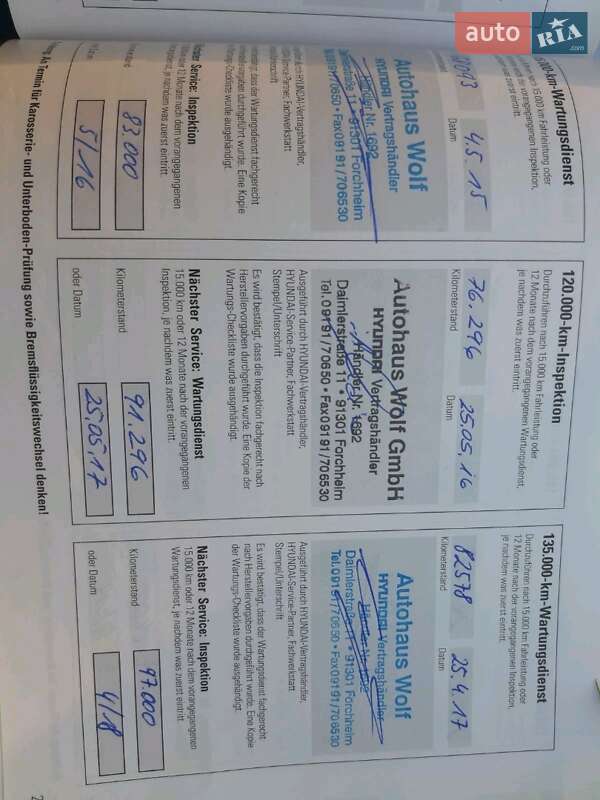 auto
RIA
.com
-km-Wartungsdienst
4.5.15
Datum
Autohaus Wolf
HYUNDAI Vertragshändler
Händler Nr. 1692
Daimlerstraße 11 • 91301 Forchheim
Tel. 09191/70650 • Fax 09191/706530
Service: Inspektion
12 Monate nach dem vorangegangenen
83.000
5/16
120.000-km-Inspektion
Durchzuführen nach 15.000 km Fahrleistung oder
12 Monate nach dem vorangegangenen Wartungsdienst,
je nachdem was zuerst eintritt.
76.296
25.05.16
Kilometerstand
Datum
Autohaus Wolf GmbH
HYUNDAI Vertragshändler
Händler Nr. 1692
Daimlerstraße 11 • 91301 Forchheim
Tel. 09191/70650 • Fax 09191/706530
Ausgeführt durch HYUNDAI-Vertragshändler,
HYUNDAI-Service-Partner, Fachwerkstatt
Stempel/Unterschrift
Es wird bestätigt, dass die Inspektion fachgerecht nach
Herstellervorgaben durchgeführt wurde. Eine Kopie der
Wartungs-Checkliste wurde ausgehändigt.
Nächster Service: Wartungsdienst
15.000 km oder 12 Monate nach der vorangegangenen
Inspektion, je nachdem was zuerst eintritt.
Kilometerstand
91.296
oder Datum
25.05.17
135.000-km-Wartungsdienst
Durchzuführen nach 15.000 km Fahrleistung oder
12 Monate nach der vorangegangenen Inspektion,
je nachdem was zuerst eintritt.
82578
25.4.17
Kilometerstand
Datum
Autohaus Wolf
HYUNDAI Vertragshändler
Händler Nr. 1692
Daimlerstraße 11 • 91301 Forchheim
Tel. 09191/70650 • Fax 09191/706530
Ausgeführt durch HYUNDAI-Vertragshändler,
HYUNDAI-Service-Partner, Fachwerkstatt
Stempel/Unterschrift
Es wird bestätigt, dass der Wartungsdienst fachgerecht
nach Herstellervorgaben durchgeführt wurde. Eine Kopie
der Wartungs-Checkliste wurde ausgehändigt.
Nächster Service: Inspektion
15.000 km oder 12 Monate nach dem vorangegangenen
Wartungsdienst, je nachdem was zuerst eintritt.
Kilometerstand
97.000
oder Datum
4/18
Termin für Karosserie- und Unterboden-Prüfung sowie Bremsflüssigkeitswechsel denken!